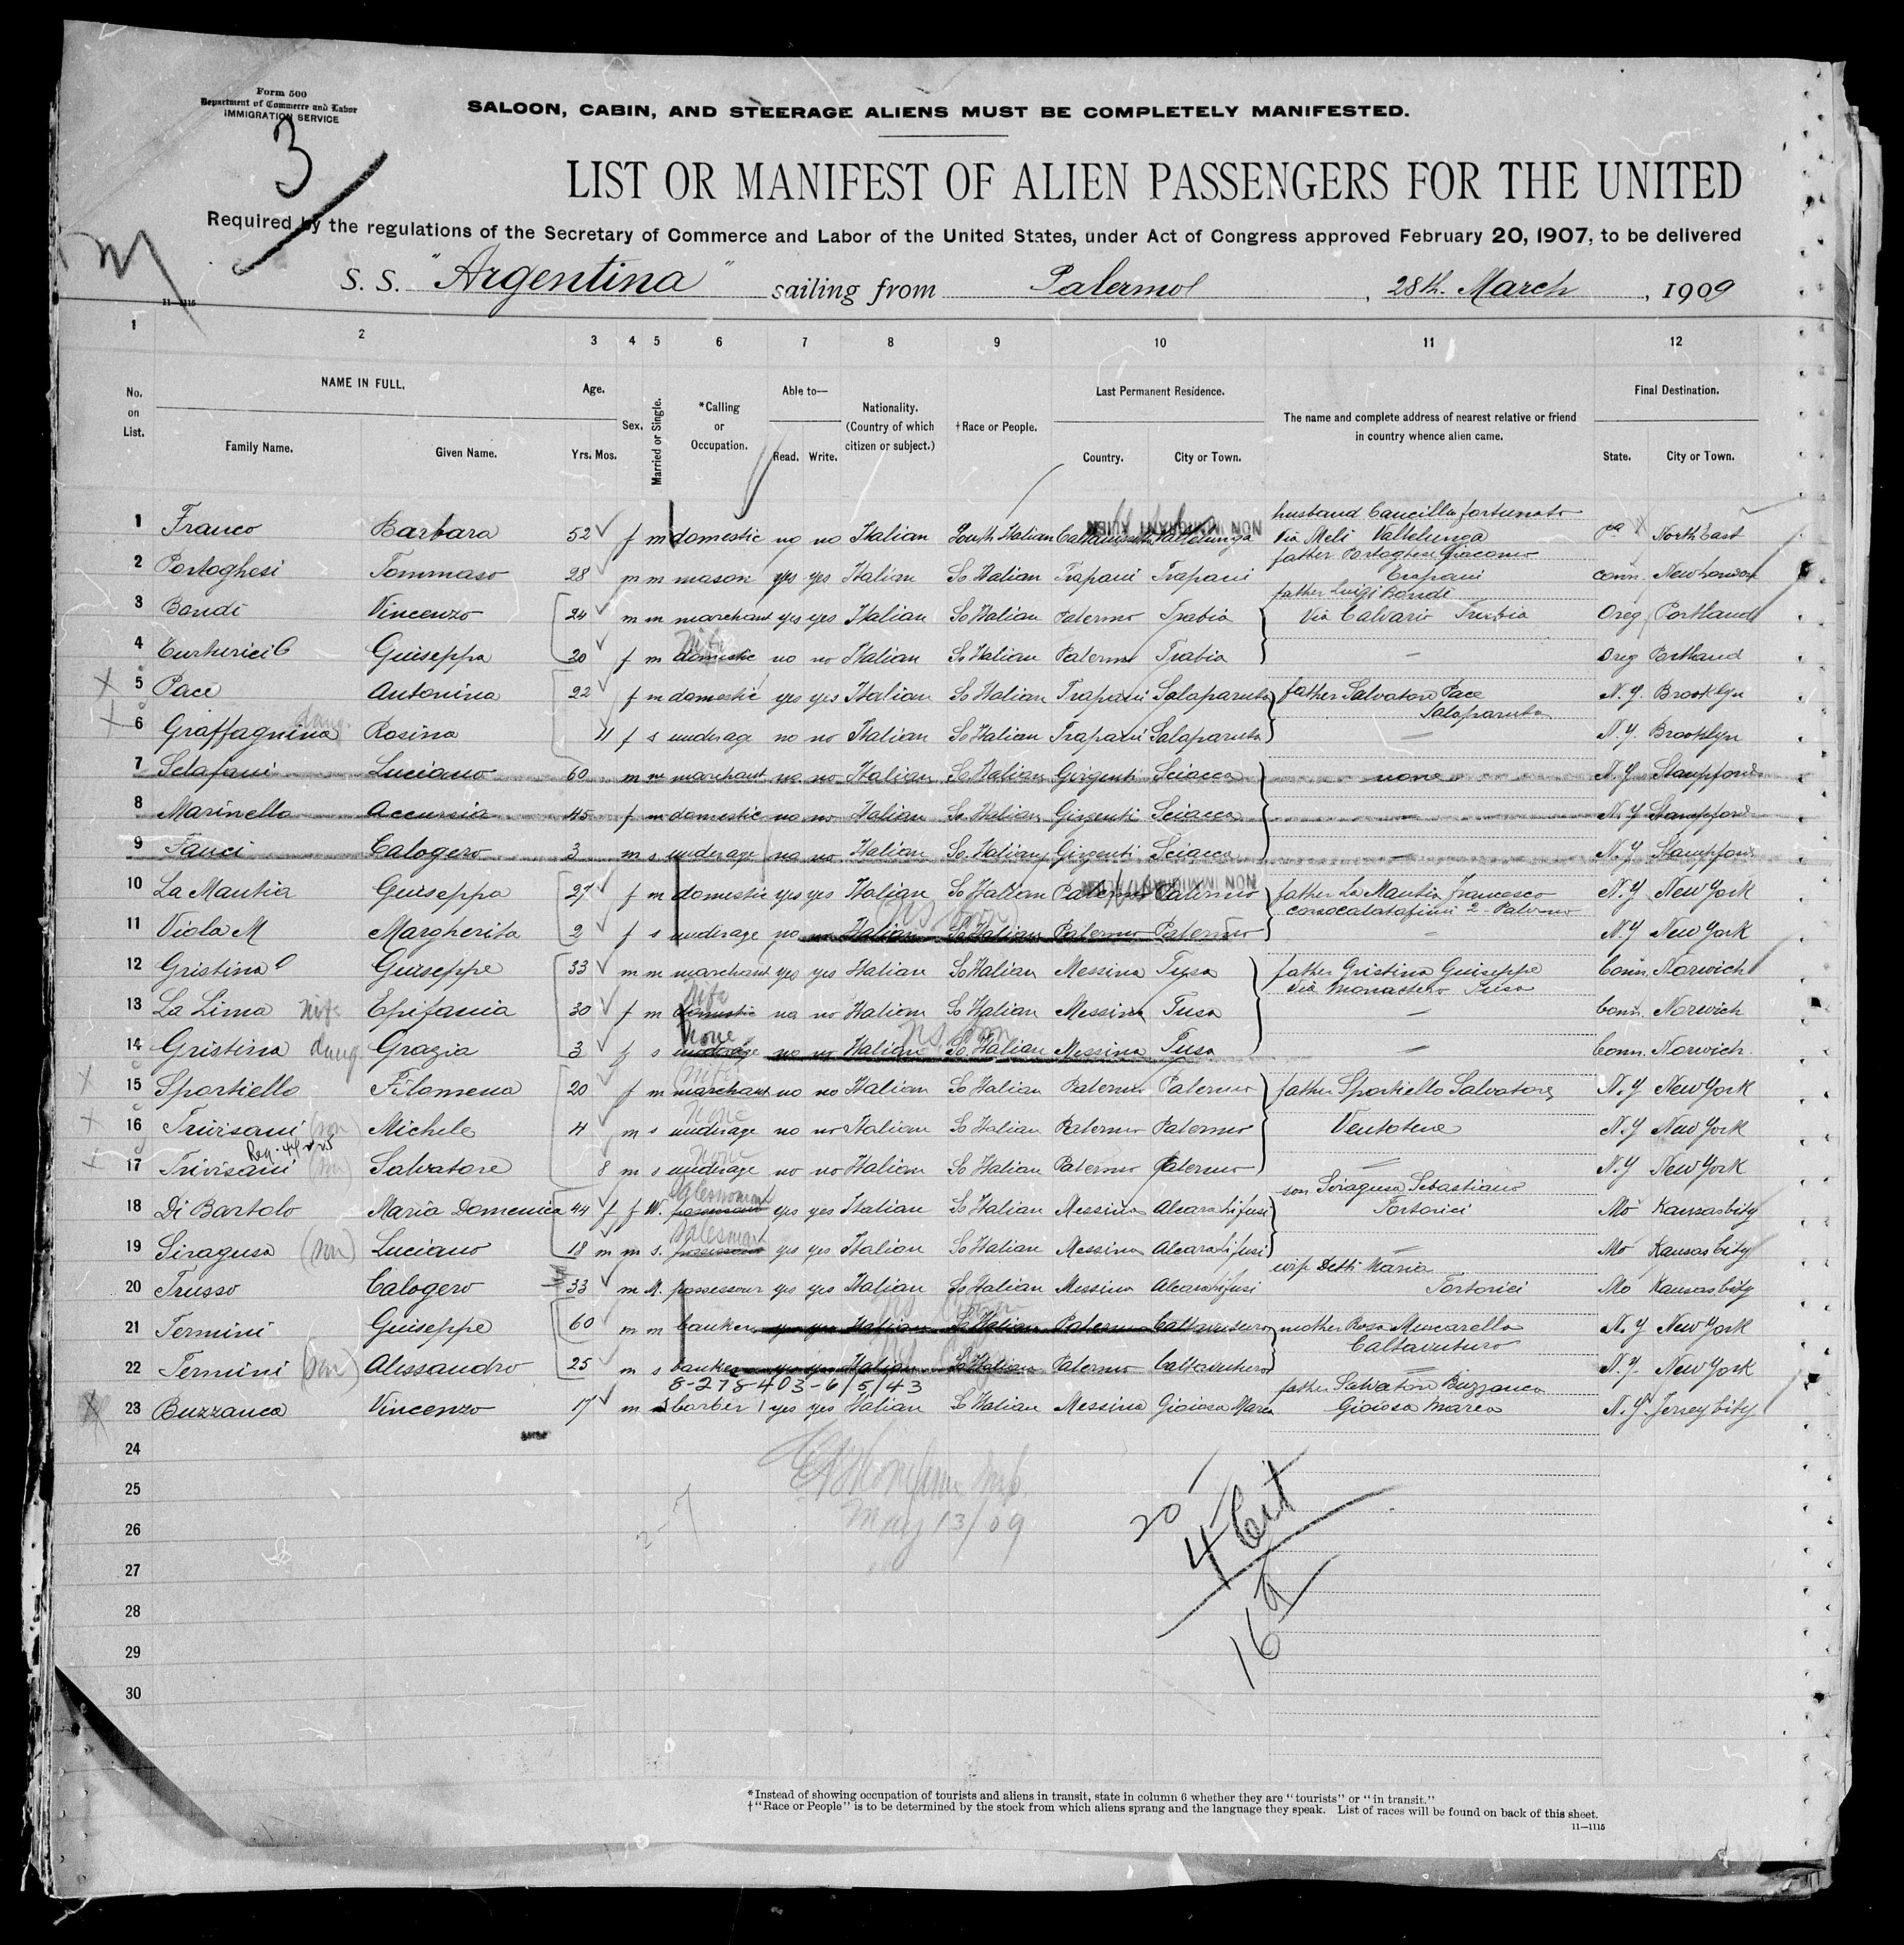 Form 500
Department of Commerce and Labor
IMMIGRATION SERVICE
3
SALOON, CABIN, AND STEERAGE ALIENS MUST BE COMPLETELY MANIFESTED.
LIST OR MANIFEST OF ALIEN PASSENGERS FOR THE UNITED
Required by the regulations of the Secretary of Commerce and Labor of the United States, under Act of Congress approved February 20, 1907, to be delivered
S. S. "Argentina" sailing from Palermo, 28th. March, 1909
11—1115
1 2 3 4 5 6 7 8 9 10 11 12
No. on List.
NAME IN FULL.
Family Name. Given Name.
Age.
Yrs. Mos.
Sex.
Married or Single.
*Calling or Occupation.
Able to—
Read. Write.
Nationality. (Country of which citizen or subject.)
†Race or People.
Last Permanent Residence.
Country. City or Town.
The name and complete address of nearest relative or friend in country whence alien came.
Final Destination.
State. City or Town.
NON IMMIGRANT ALIEN
husband Caucilla fortunato
1 Franco Barbara 52 f m domestic no no Italian South Italian Caltanissetta Vallelunga Via Meli Vallelunga Pa North East
father Portoghesi Giacomo
2 Portoghesi Tommaso 28 m m mason yes yes Italian So Italian Trapani Trapani Trapani Conn. New London
father Luigi Bondi
3 Bondi Vincenzo 24 m m marchant yes yes Italian So Italian Palermo Trabia Via Calvario Trabia Oreg Portland
wife
4 Giuseppa 20 f m domestic no no Italian So Italian Palermo Trabia — Oreg Portland
5 Pace Antonina 22 f m domestic yes yes Italian So Italian Trapani Salaparuta father Salvatore Pace N. Y. Brooklyn
Salaparuta
daug.
6 Graffagnina Rosina 11 f s underage no no Italian So Italian Trapani Salaparuta — N. Y. Brooklyn
7 Sclafani Luciano 60 m m marchant no no Italian So Italian Girgenti Sciacca none N. Y Stampford
8 Marinello Accursia 45 f m domestic no no Italian So Italian Girgenti Sciacca — N. Y Stampford
9 Fauci Calogero 3 m s underage no no Italian So Italian Girgenti Sciacca — N. Y Stampford
NON IMMIGRANT ALIEN
10 La Mantia Giuseppa 27 f m domestic yes yes Italian So Italian Palermo Palermo father La Mantia Francesco N. Y New York
corsocalatafimi 2 - Palermo
11 Viola M Margherita 2 f s underage no no Italian So Italian Palermo Palermo — N. Y New York
12 Gristina Giuseppe 33 m m marchant yes yes Italian So Italian Messina Tusa father Gristina Giuseppe Conn. Norwich
Via Monastero Tusa
wife
13 La Lima wife Epifania 30 f m domestic no no Italian So Italian Messina Tusa — Conn. Norwich
none
14 Gristina daug. Grazia 3 f s underage no no Italian So Italian Messina Tusa — Conn. Norwich
wife
15 Sportiello Filomena 20 f m marchant no no Italian So Italian Palermo Palermo father Sportiello Salvatore N. Y New York
none
16 Trivisani (son) Michele 4 m s underage no no Italian So Italian Palermo Palermo Ventotene N. Y New York
none
17 Trivisani (son) Salvatore 8 m s underage no no Italian So Italian Palermo Palermo — N. Y New York
son Siragusa Sebastiano
saleswoman
18 Di Bartolo Maria Domenica 44 f f W. possessour yes yes Italian So Italian Messina Alcara li fusi Tortorici Mo Kansas City
salesman
19 Siragusa (son) Luciano 18 m m s. possessour yes yes Italian So Italian Messina Alcara li fusi — Mo Kansas City
wife Detti Maria
20 Trusso Calogero 33 m M. possessour yes yes Italian So Italian Messina Alcara li fusi Tortorici Mo Kansas City
21 Termini Giuseppe 60 m m banker yes yes Italian So Italian Palermo Caltavuturo mother Rosa Muscarella N. Y New York
Caltavuturo
22 Termini (son) Alissandro 25 m s banker yes yes Italian So Italian Palermo Caltavuturo — N. Y. New York
8-278-403-6/5/43
father Salvatore Buzzanca
23 Buzzanca Vincenzo 17 m s barber yes yes Italian So Italian Messina Gioiosa Marea Gioiosa Marea N. Y. Jersey City
24
25
26
27
28
29
30
May 13/09
20
4 Cit
16 a
*Instead of showing occupation of tourists and aliens in transit, state in column 6 whether they are "tourists" or "in transit."
†"Race or People" is to be determined by the stock from which aliens sprang and the language they speak. List of races will be found on back of this sheet.
11—1115